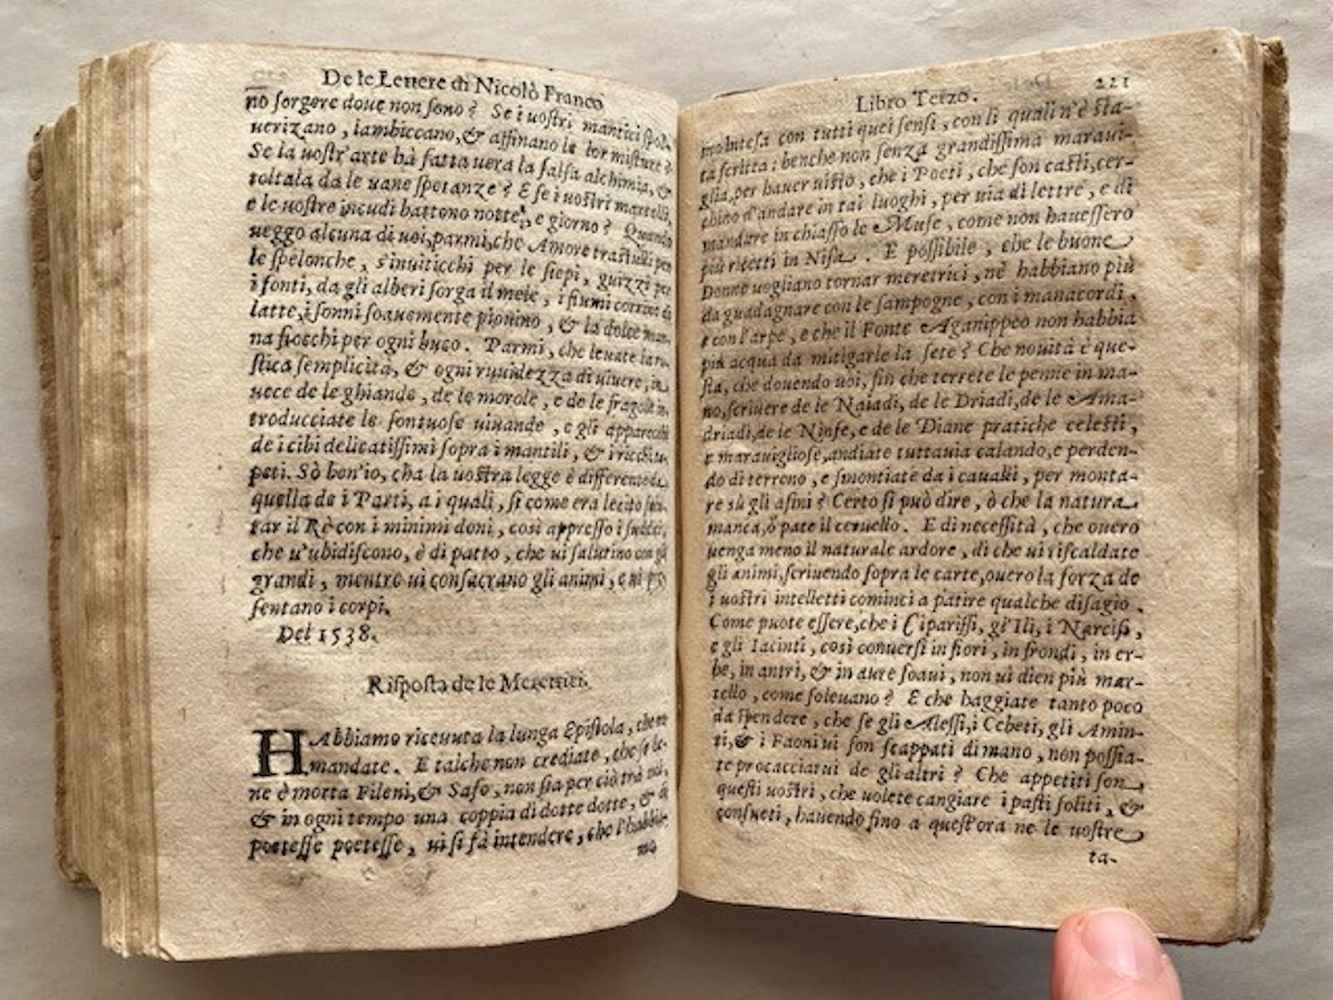 De le Lettere di Nicolò Franco
no ſorgere doue non ſono? Se i uoſtri mantici ſpol-
uerizano, lambiccano, & affinano le lor miſture?
Se la uoſtr'arte hà fatta uera la falſa alchimia, &
toltala da le uane ſperanze? E ſe i uoſtri martelli,
e le uoſtre incudi battono notte, e giorno? Quando
ueggo alcuna di uoi, parmi, che Amore traſtulli per
le ſpelonche, s'inuiticchi per le ſiepi, guizzi per
i fonti, da gli alberi ſorga il mele, i fiumi corrino di
latte, i ſonni ſoauemente piouino, & la dolce man-
na fiocchi per ogni buco. Parmi, che leuate la ru-
ſtica ſemplicità, & ogni ruuidezza di uiuere, in
uece de le ghiande, de le morole, e de le fragole in-
troducciate le ſontuoſe uiuande, e gli apparecchi
de i cibi delicatiſſimi ſopra i mantili, & i ricchi
peti. Sò ben'io, cha la uoſtra legge è differente da
quella de i Parti, a i quali, ſi come era lecito ſalu-
tar il Rè con i minimi doni, così appreſſo i ſudditi,
che u'ubidiſcono, è di patto, che ui ſalutino con gli
grandi, mentre ui conſacrano gli animi, e ui pre-
ſentano i corpi.
Del 1538.
Riſpoſta de le Meretrici.
HAbbiamo riceuuta la lunga Epiſtola, che ne
mandate. E talche non crediate, che ſe be-
ne è morta Fileni, & Safo, non ſia per ciò trà noi,
& in ogni tempo una coppia di dotte dotte, & di
poeteſſe poeteſſe, ui ſi fà intendere, che l'habbia-
mo
Libro Terzo. 221
mo inteſa con tutti quei ſenſi, con li quali n'è ſta-
ta ſcritta: benche non ſenza grandiſſima maraui-
glia, per hauer uiſto, che i Poeti, che ſon caſti, cer-
chino d'andare in tai luoghi, per uia di lettre, e di
mandare in chiaſſo le Muſe, come non haueſſero
più ricetti in Niſa. E poſſibile, che le buone
Donne uogliano tornar meretrici, nè habbiano più
da guadagnare con le ſampogne, con i manacordi,
e con l'arpe, e che il Fonte Aganippeo non habbia
più acqua da mitigarle la ſete? Che nouità è que-
ſta, che douendo uoi, fin che terrete le penne in ma-
no, ſcriuere de le Naiadi, de le Driadi, de le Ama-
driadi, de le Ninfe, e de le Diane pratiche celeſti,
e marauiglioſe, andiate tuttauia calando, e perden-
do di terreno, e ſmontiate da i caualli, per monta-
re sù gli aſini? Certo ſi può dire, ò che la natura
manca, ò pate il ceruello. E di neceſſità, che ouero
uenga meno il naturale ardore, di che ui riſcaldate
gli animi, ſcriuendo ſopra le carte, ouero la forza de
i uoſtri intelletti cominci a patire qualche diſagio.
Come puote eſſere, che i Cipariſſi, gl'Ili, i Narciſi,
e gli Iacinti, così conuerſi in fiori, in frondi, in er-
be, in antri, & in aure ſoaui, non ui dien più mar-
tello, come ſoleuano? E che haggiate tanto poco
da ſpendere, che ſe gli Aleſſi, i Cebeti, gli Amin-
ti, & i Faoni ui ſon ſcappati di mano, non poſſia-
te procacciarui de gli altri? Che appetiti ſon
queſti uoſtri, che uolete cangiare i paſti ſoliti, &
conſueti, hauendo fino a queſt'ora ne le uoſtre
ta-